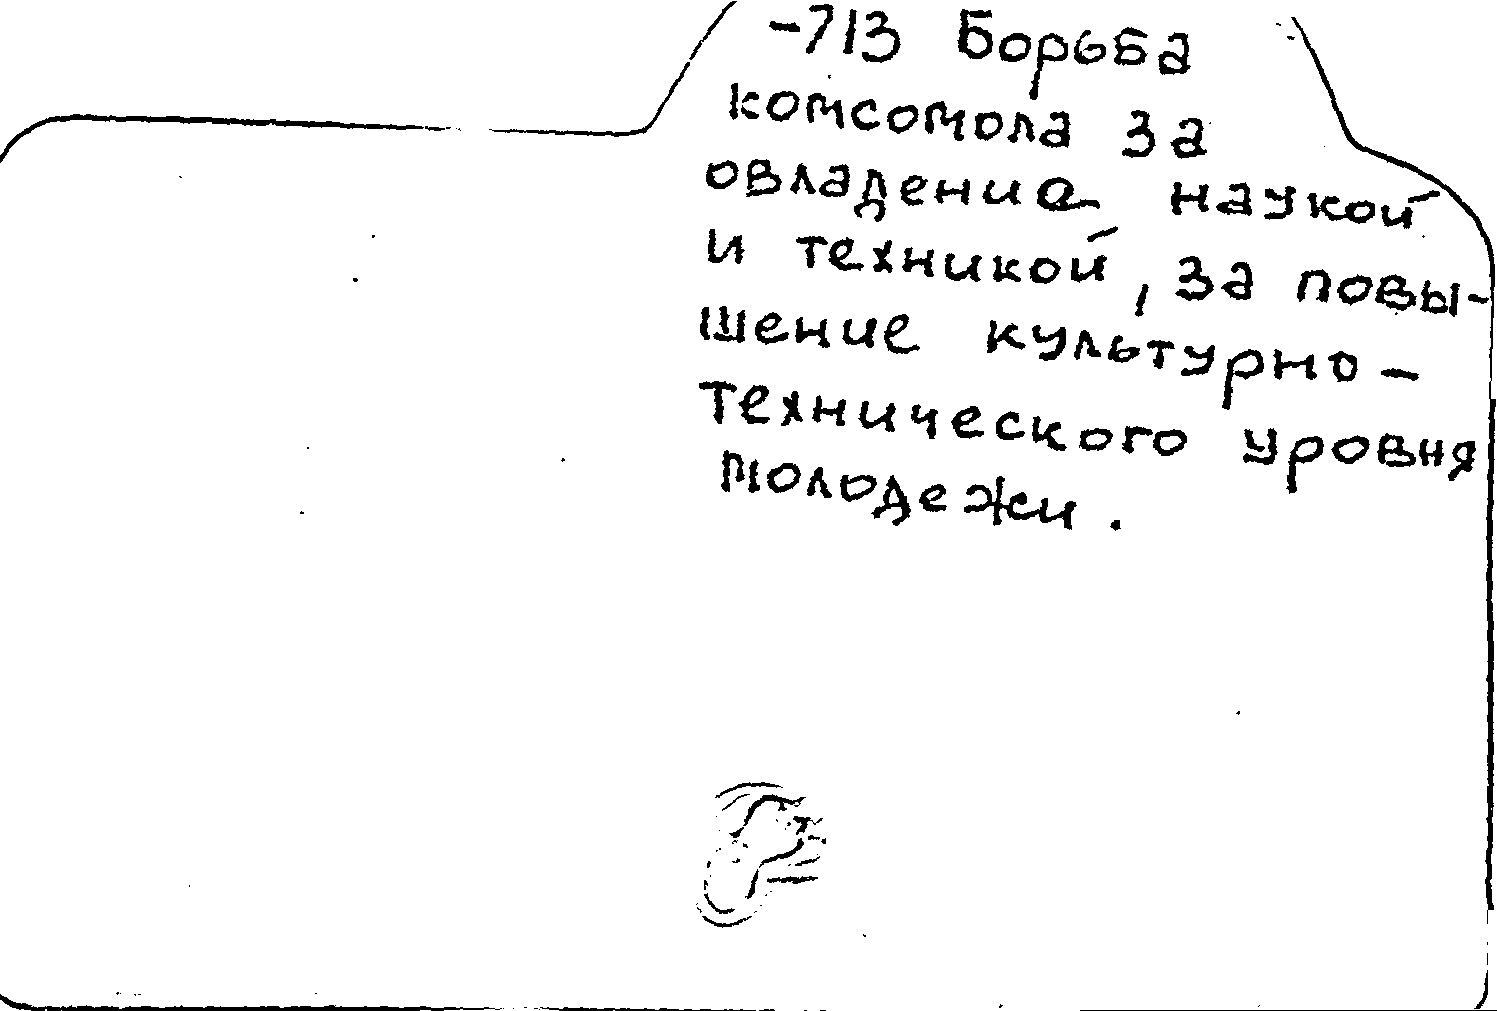 -713 Борьба
комсомола за
овладение наукой
и техникой, за повы-
шение культурно-
технического уровня
молодежи.